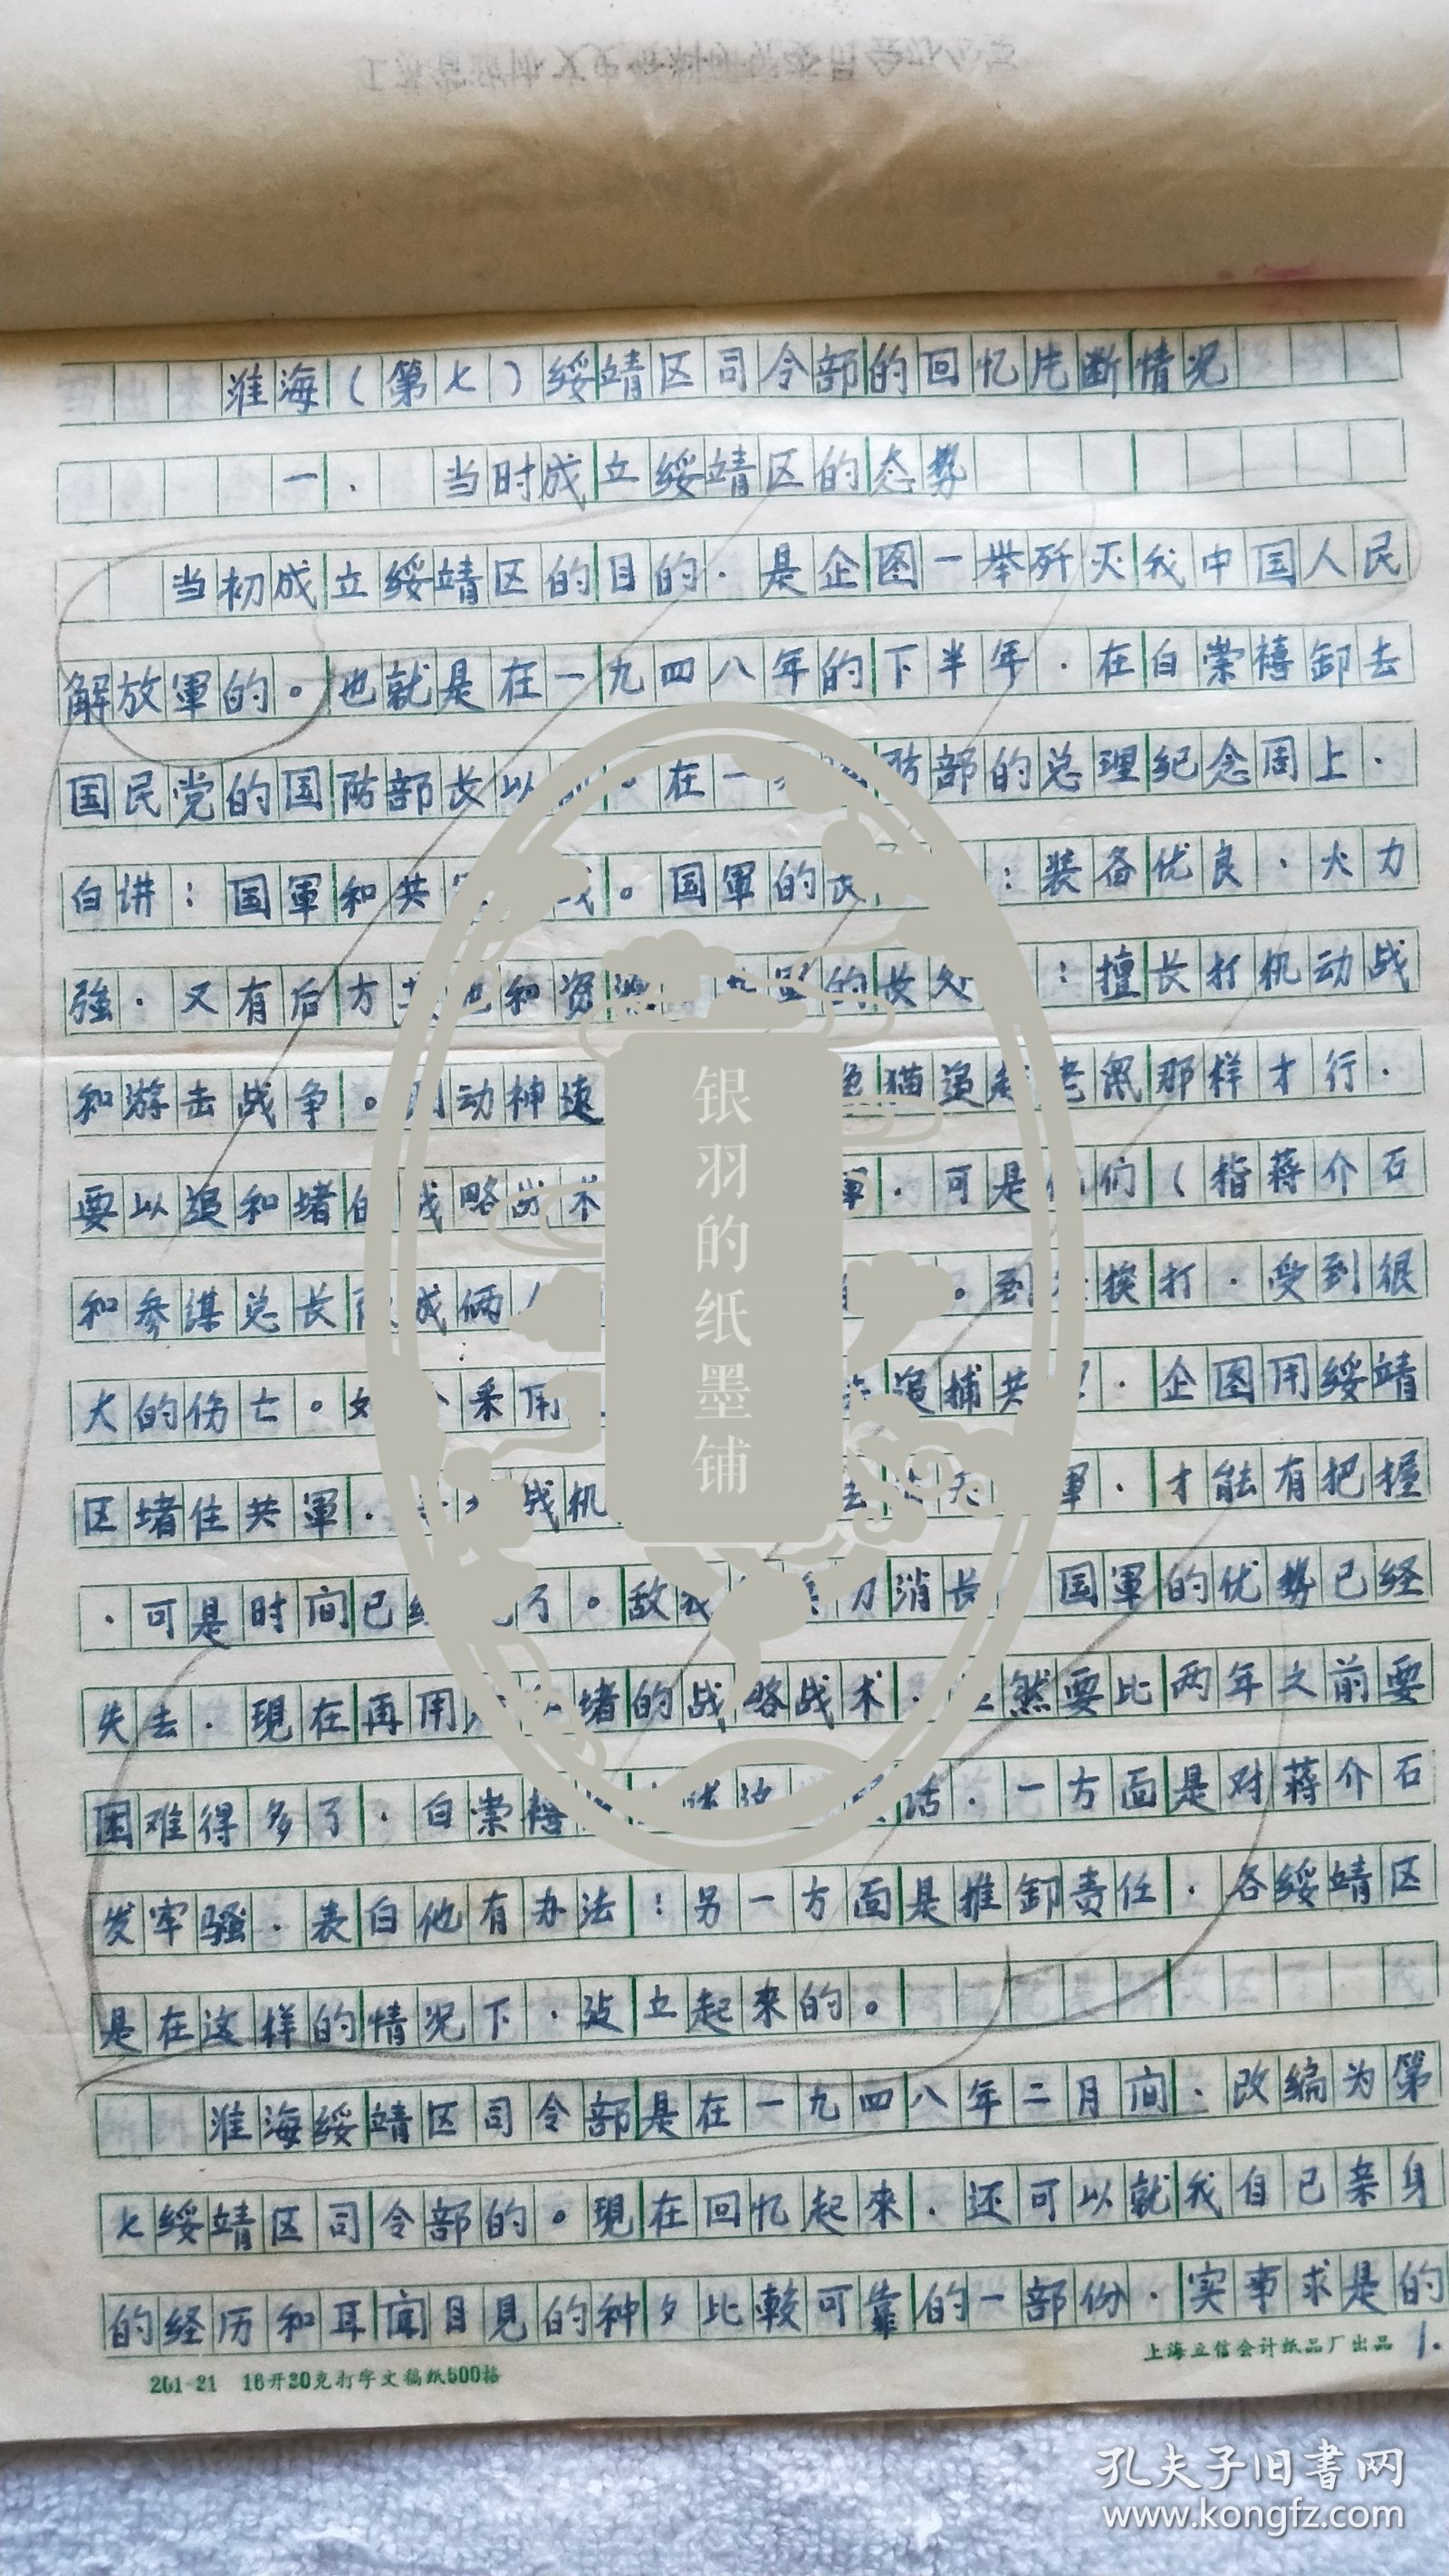 淮海(第七)绥靖区司令部的回忆片断情况
一. 当时成立绥靖区的态势
当初成立绥靖区的目的.是企图一举歼灭我中国人民
解放軍的。也就是在一九四八年的下半年.在白崇禧卸去
国民党的国防部长以 。在一 防部的总理纪念周上.
白讲:国軍和共 战。国軍的长 :装备优良、火力
強.又有后方 地和资源 軍的长处 :擅长打机动战
和游击战争。 动神速 猫追 老鼠那样才行.
要以追和堵的战略战术 軍.可是他们(指蒋介石
和参谋总长陈成俩人 。到 挨打.受到很
大的伤亡。如 采用 追捕共 .企图用绥靖
区堵住共軍. 战机 軍.才能有把握
.可是时间已经 了。敌我 力消长 国軍的优势已经
失去.現在再用 堵的战略战术. 然要比两年之前要
困难得多了.白崇禧 话.一方面是对蒋介石
发牢骚.表白他有办法:另一方面是推卸责任.各绥靖区
是在这样的情况下.建立起来的。
淮海绥靖区司令部是在一九四八年二月间、改编为第
七绥靖区司令部的。現在回忆起来.还可以就我自己亲身
的经历和耳闻目見的种々比較可靠的一部份.实事求是的
201-21 16开20克打字文稿纸500格
上海立信会计纸品厂出品
1.
银羽的纸墨铺
孔夫子旧书网
www.kongfz.com